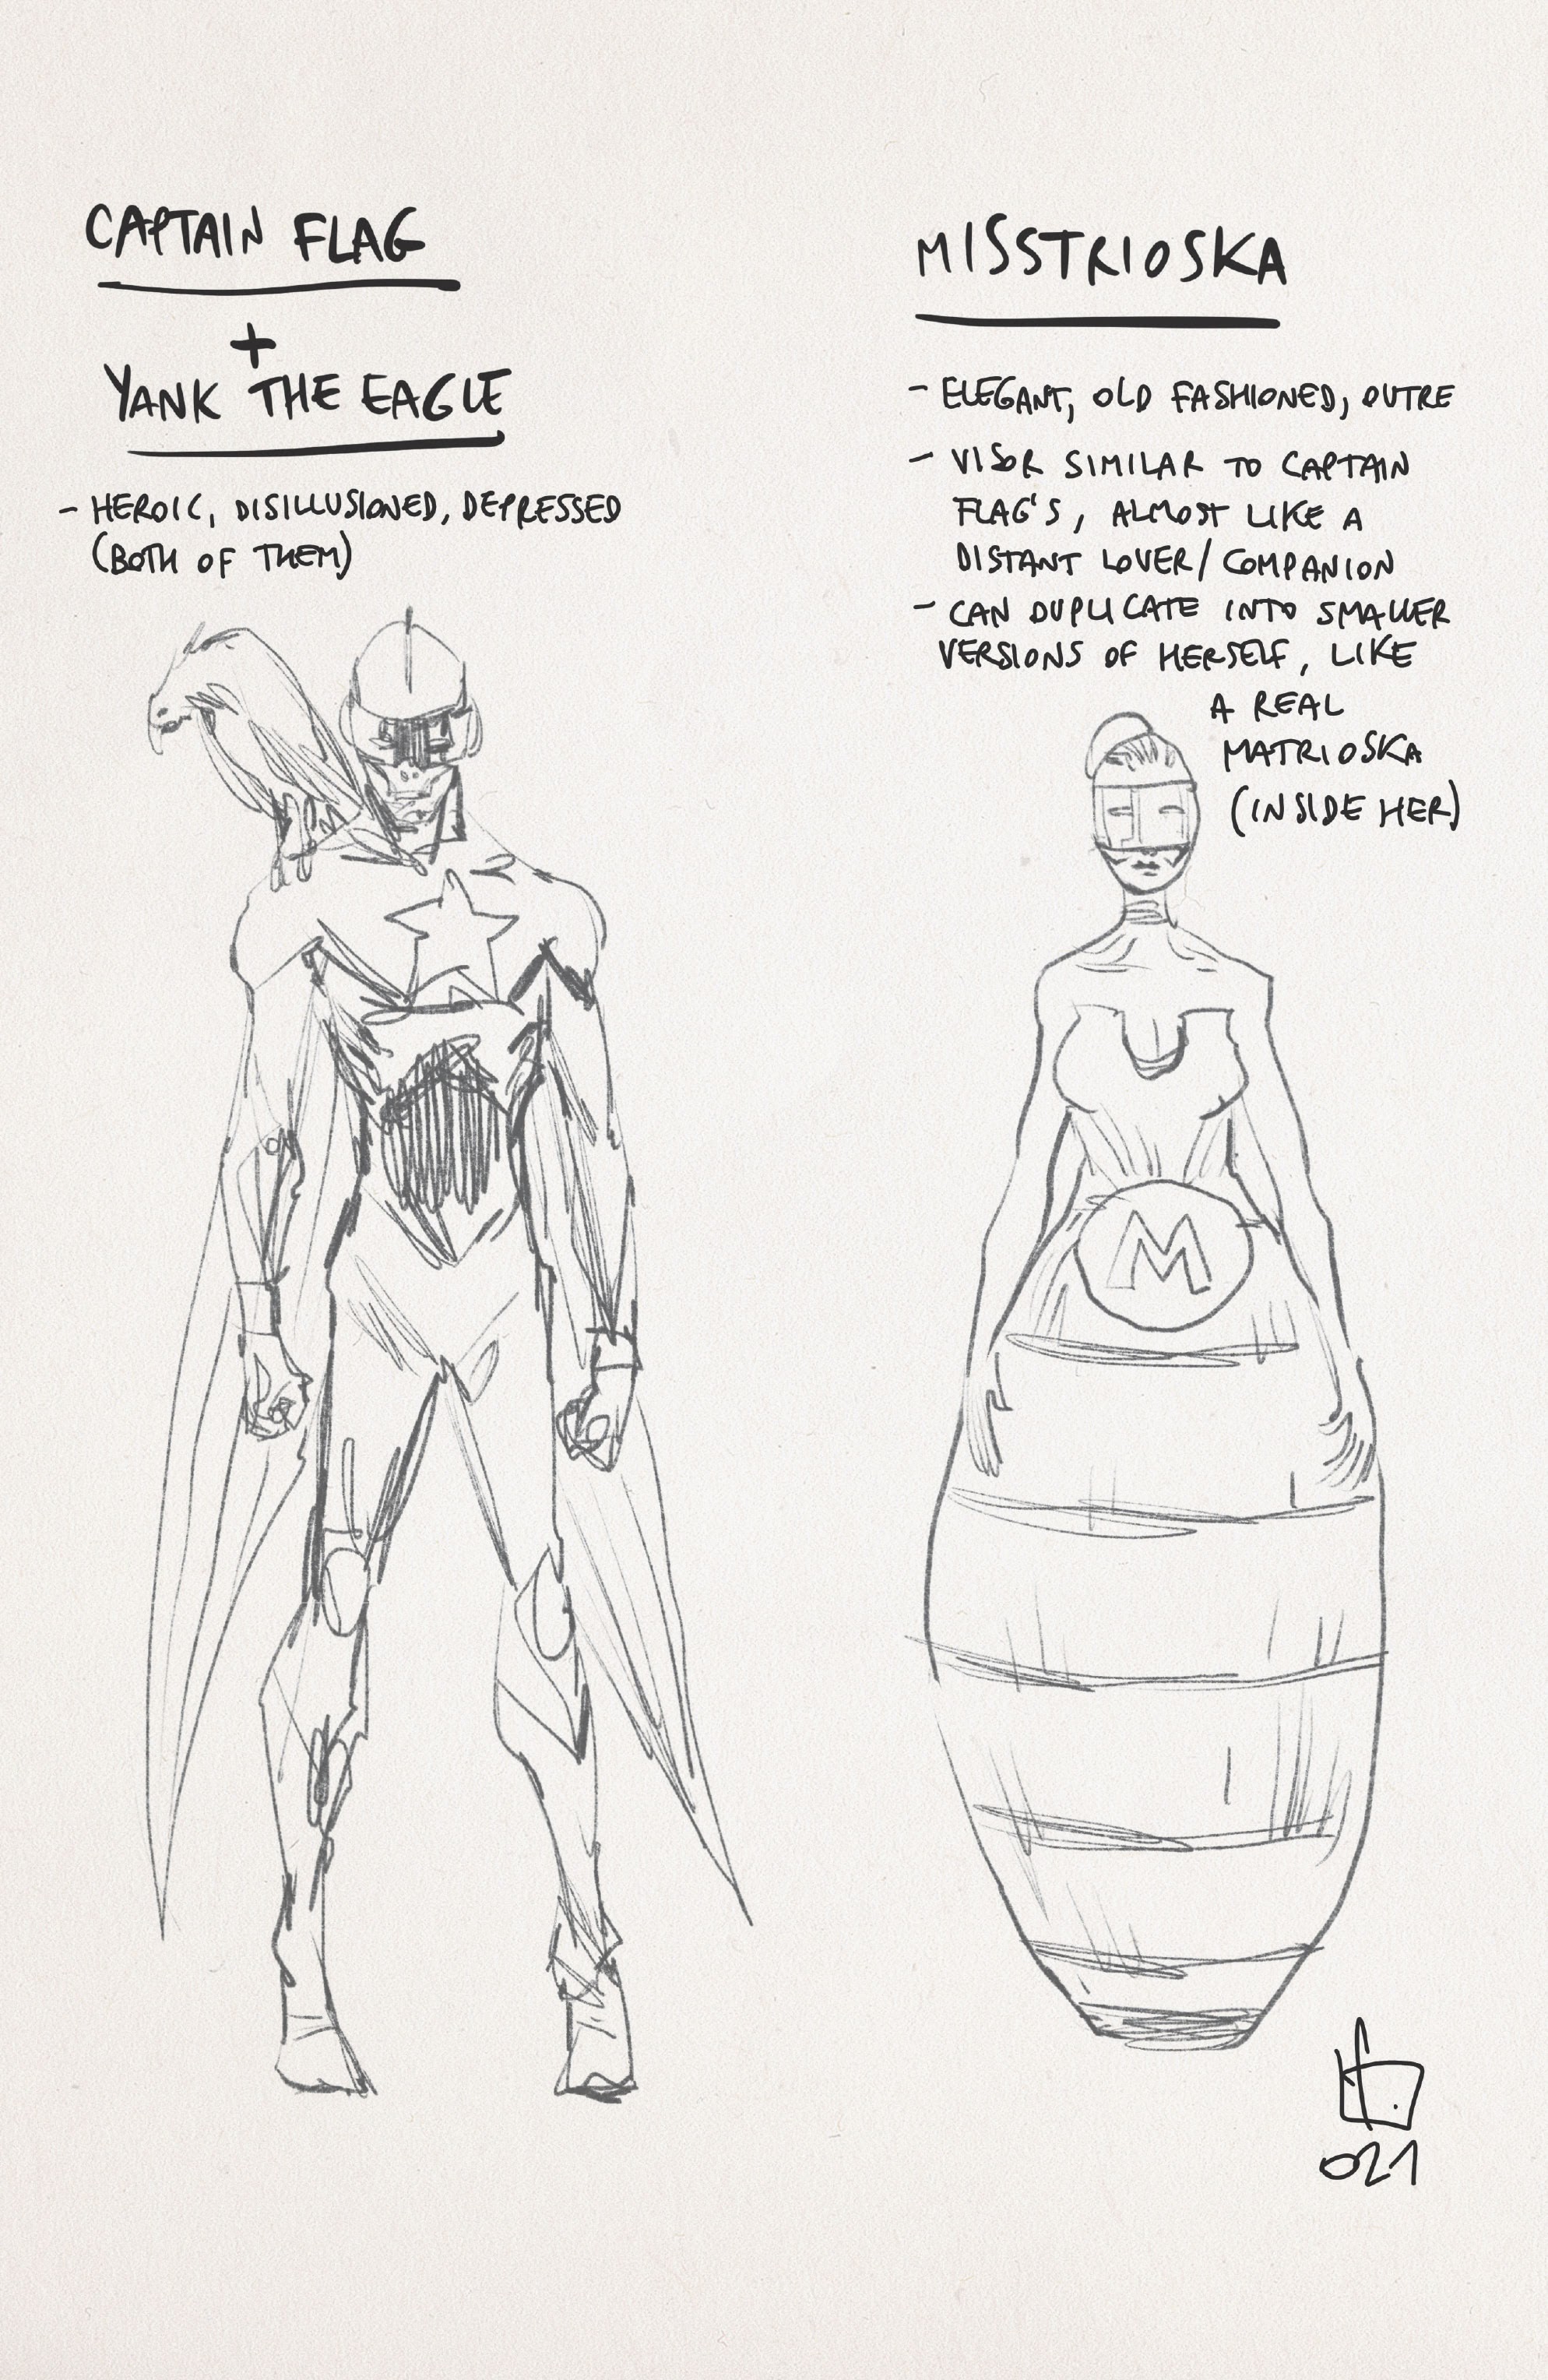 CAPTAIN FLAG
+
YANK THE EAGLE
- HEROIC, DISILLUSIONED, DEPRESSED
(BOTH OF THEM)
MISSTRIOSKA
- ELEGANT, OLD FASHIONED, OUTRE
- VISOR SIMILAR TO CAPTAIN
FLAG'S, ALMOST LIKE A
DISTANT LOVER/COMPANION
- CAN DUPLICATE INTO SMALLER
VERSIONS OF HERSELF, LIKE
A REAL
MATRIOSKA
(INSIDE HER)
M
021